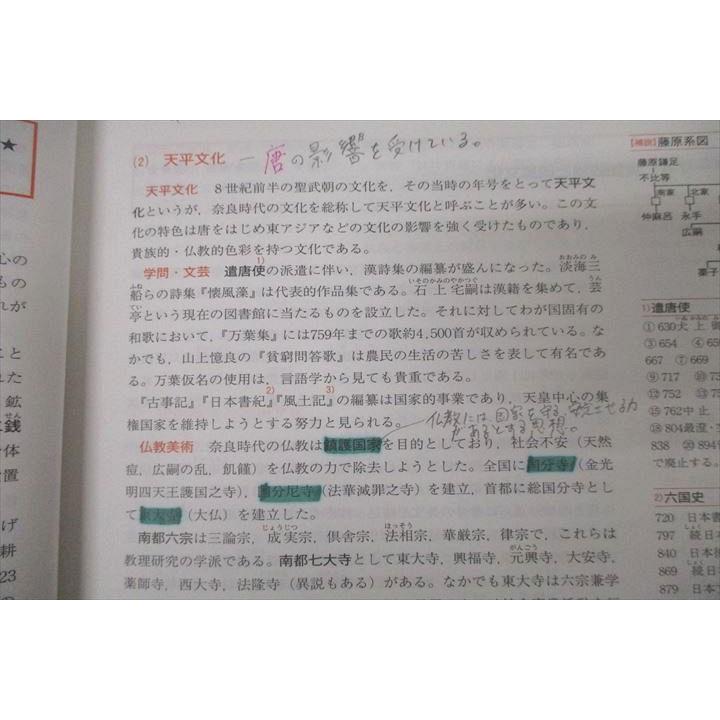 (2) 天平文化 — 唐の影響を受けている。
天平文化 8世紀前半の聖武朝の文化を，その当時の年号をとって天平文
化というが，奈良時代の文化を総称して天平文化と呼ぶことが多い。この文
化の特色は唐をはじめ東アジアなどの文化の影響を強く受けたものであり，
貴族的・仏教的色彩を持つ文化である。
学問・文芸 遣唐使1)の派遣に伴い，漢詩集の編纂が盛んになった。淡海三
おおみのみ
船らの詩集『懐風藻』は代表的作品である。石上宅嗣は漢籍を集めて，芸
ふね いそのかみのやかつぐ うん
亭という現在の図書館に当たるものを設立した。それに対してわが国固有の
てい
和歌において，『万葉集』には759年までの歌約4,500首が収められている。な
かでも，山上憶良の『貧窮問答歌』は農民の生活の苦しさを表して有名であ
る。万葉仮名の使用は，言語学から見ても貴重である。
『古事記』『日本書紀』2)『風土記』3)の編纂は国家的事業であり，天皇中心の集
権国家を維持しようとする努力と見られる。
仏教には国家を守る
があるとする思想。
仏教美術 奈良時代の仏教は鎮護国家を目的としており，社会不安（天然
痘，広嗣の乱，飢饉）を仏教の力で除去しようとした。全国に国分寺（金光
明四天王護国之寺），国分尼寺（法華滅罪之寺）を建立，首都に総国分寺とし
て東大寺（大仏）を建立した。
南都六宗は三論宗，成実宗，倶舎宗，法相宗，華厳宗，律宗で，これらは
じょうじつ ほっそう
教理研究の学派である。南都七大寺として東大寺，興福寺，元興寺，大安寺，
がんごう
薬師寺，西大寺，法隆寺（異説もある）がある。なかでも東大寺は六宗兼学
★
心の
もの
れが
こと
れた
鉱
せん
二銭
身体
置
げ
耕
23
【補説】藤原系図
藤原鎌足
不比等
南家 北家
仲麻呂 永手
広嗣
薬子
1)遣唐使
①630犬上御
③654 ④65
667 ⑦669
⑨717 ⑩73
⑫752 ⑬75
⑮762中止
⑱804最澄・空
838 ⑳894
で廃止する。
2)六国史
720 日本書
797 続日本
840 日本
869 続日
879 日本